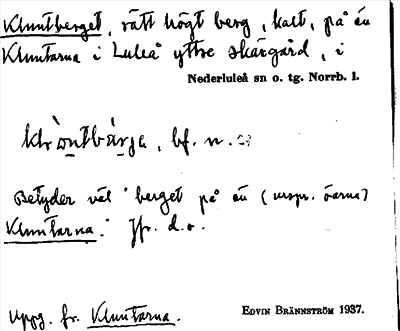 Kluntberget, rätt högt berg, kalt, på ön
Kluntarna i Luleå yttre skärgård, i
Nederluleå sn o. tg. Norrb. l.
bf. n.
Betyder väl "berget på ön (urspr. öarna)
Kluntarna." Jfr. d. o.
Uppg. fr. Kluntarna.
EDVIN BRÄNNSTRÖM 1937.